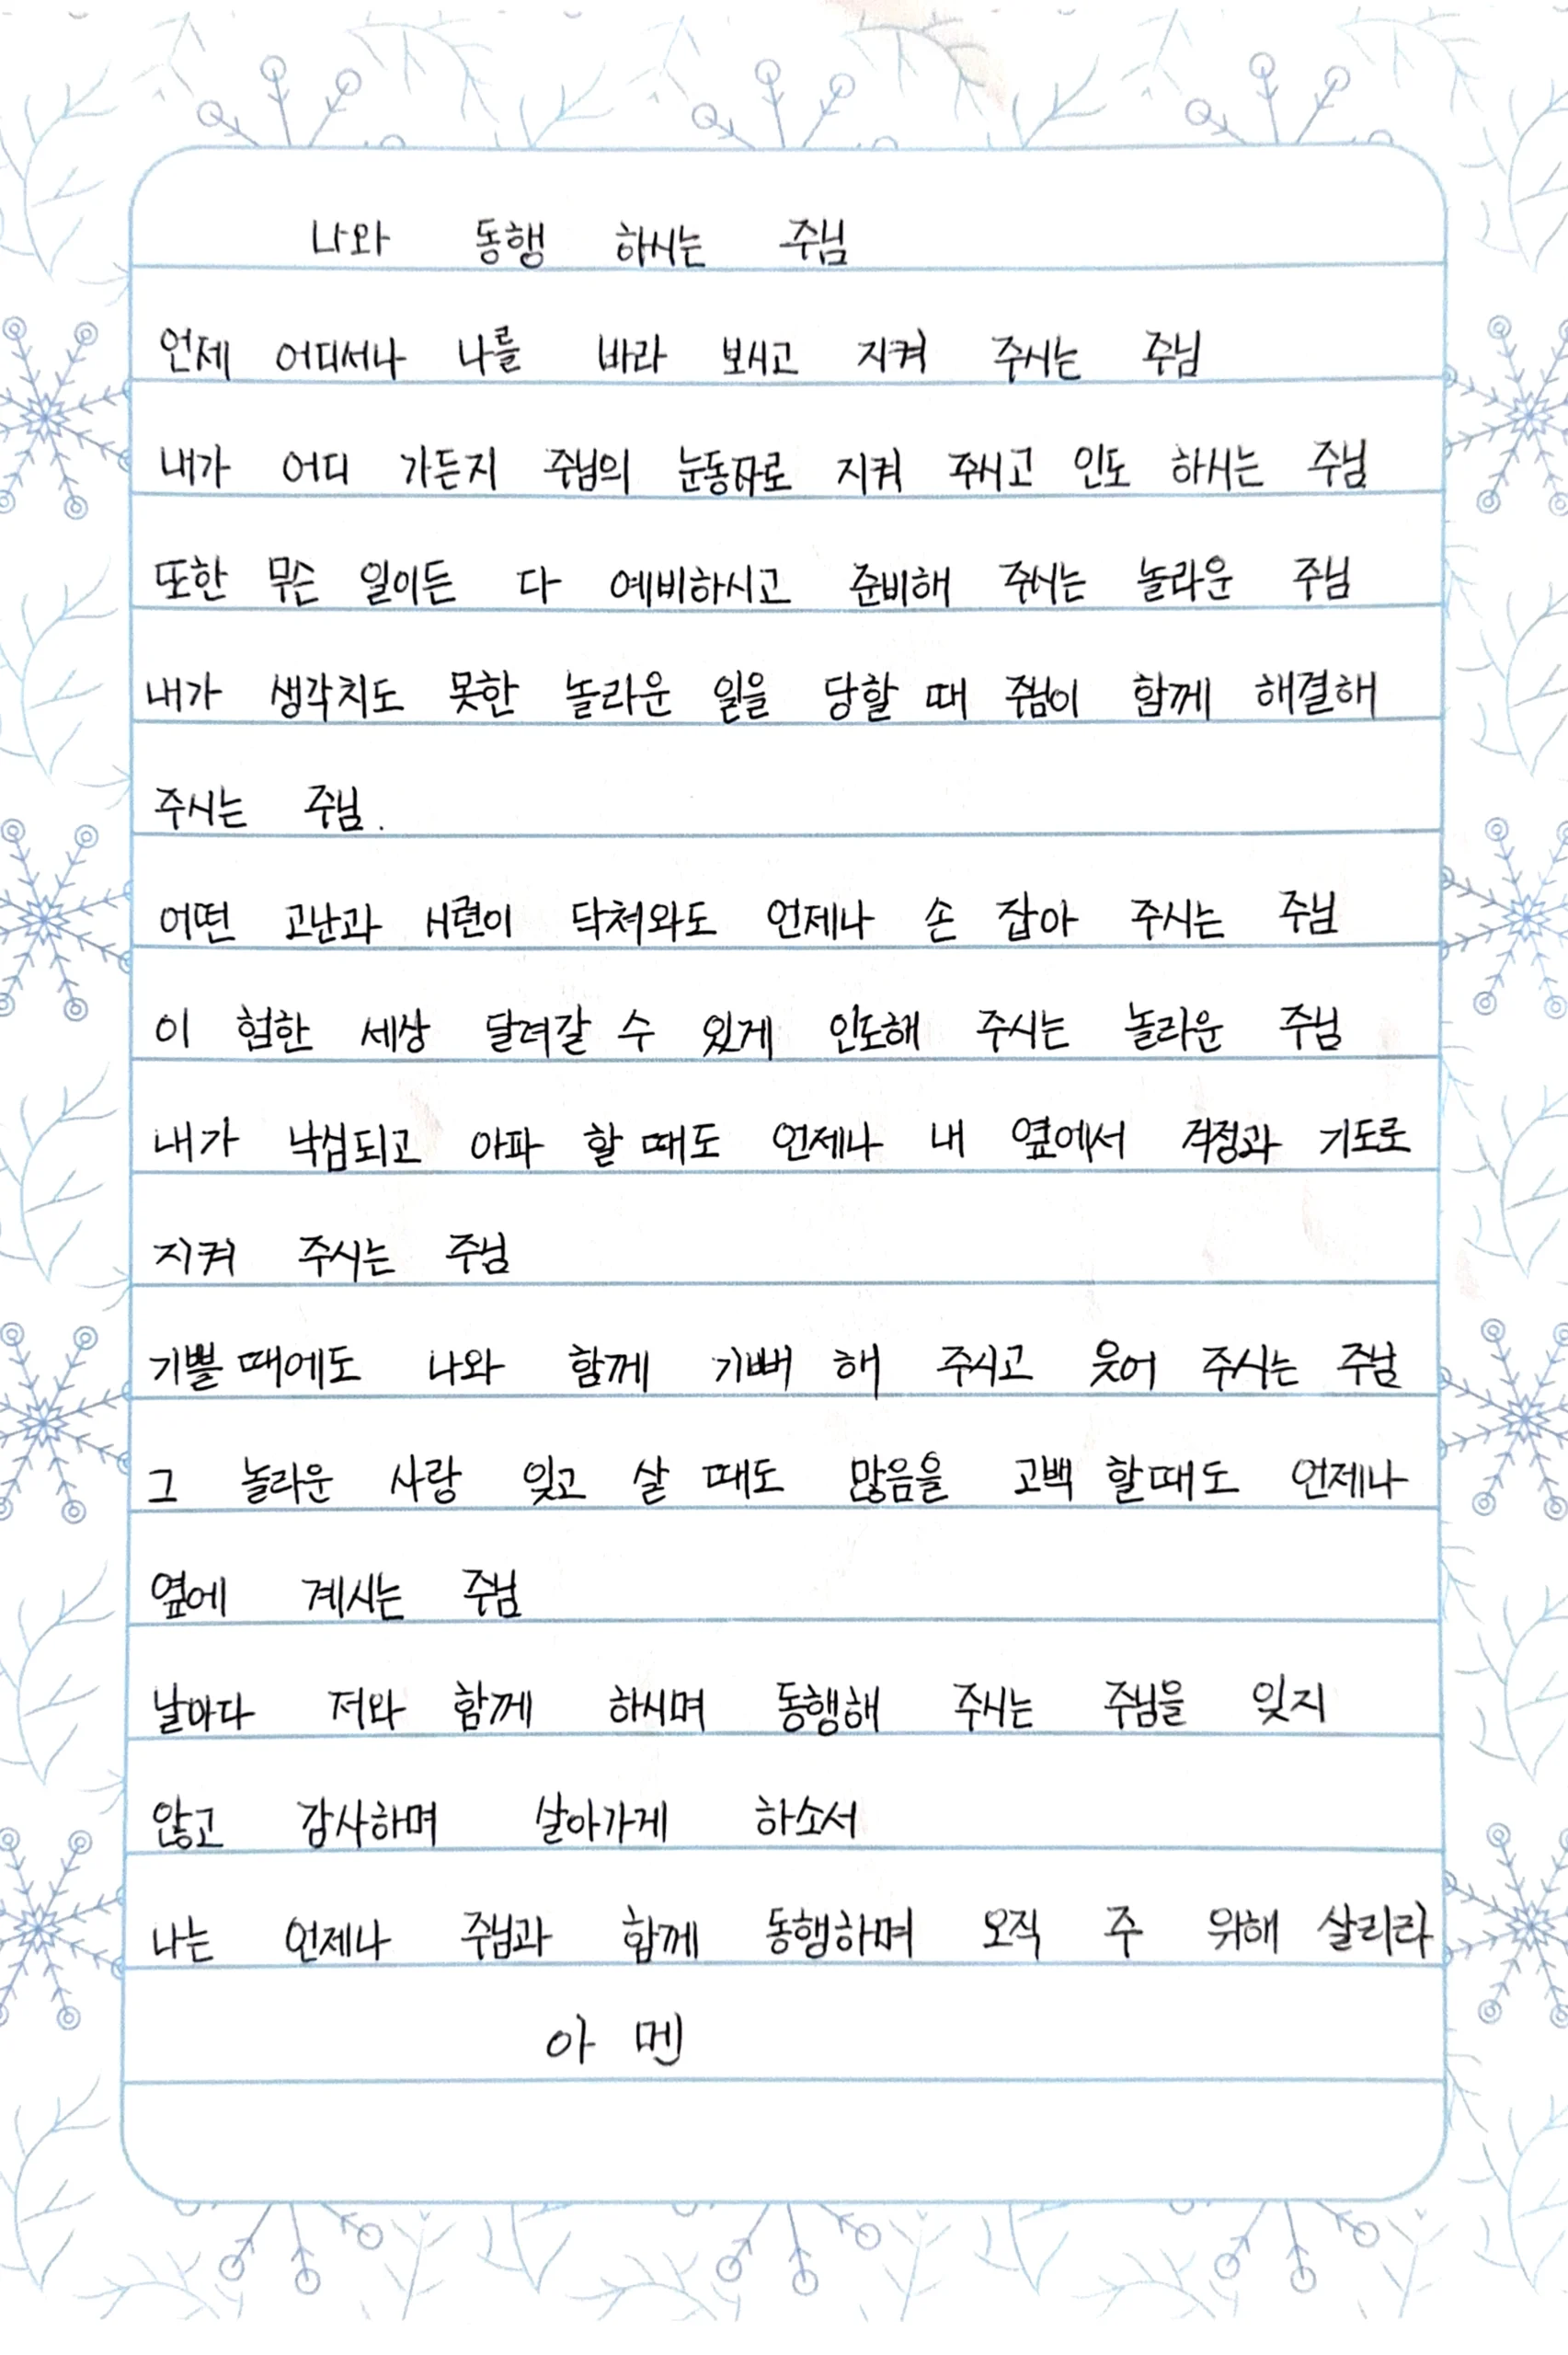 나와 동행 하시는 주님
언제 어디서나 나를 바라 보시고 지켜 주시는 주님
내가 어디 가든지 주님의 눈동자로 지켜 주시고 인도 하시는 주님
또한 무슨 일이든 다 예비하시고 준비해 주시는 놀라운 주님
내가 생각치도 못한 놀라운 일을 당할 때 주님이 함께 해결해
주시는 주님.
어떤 고난과 시련이 닥쳐와도 언제나 손 잡아 주시는 주님
이 험한 세상 달려갈 수 있게 인도해 주시는 놀라운 주님
내가 낙심되고 아파 할 때도 언제나 내 옆에서 걱정과 기도로
지켜 주시는 주님
기쁠 때에도 나와 함께 기뻐 해 주시고 웃어 주시는 주님
그 놀라운 사랑 잊고 살 때도 많음을 고백 할때도 언제나
옆에 계시는 주님
날마다 저와 함께 하시며 동행해 주시는 주님을 잊지
않고 감사하며 살아가게 하소서
나는 언제나 주님과 함께 동행하며 오직 주 위해 살리라
아 멘